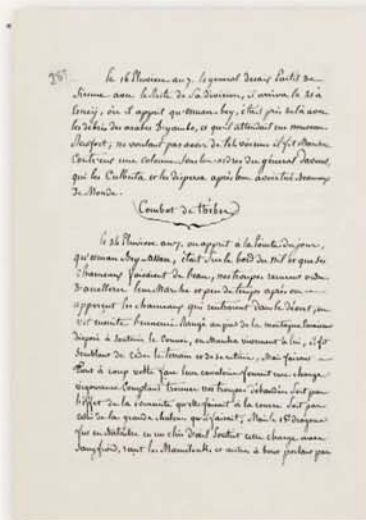 le 16 Pluviose an 7. le général Desaix Partit de
Sienne avec le Reste de sa division, il arriva le 21 à
Esneij, où il apprit qu'osman bey, était près de là avec
les débris des arabes d'yambo, et qu'il attendait un nouveau
Renfort; ne voulant pas avoir de tels voisins il fit Marcher
Contr'eux une colonne sous les ordres du général Davous,
qui les Culbuta et les dispersa après leur avoir tué Beaucoup
de Monde.
Combat de thèbes
le 24 Pluviose an 7. on apprit à la Pointe du jour,
qu'osman Bey-assan, était sur le bord du nil et que ses
chameaux faisaient de l'eau, nos troupes reçurent ordre
d'accélérer leur Marche et peu de temps après on
apperçut les chameaux qui rentraient dans le désert, on
vit ensuite l'ennemi Rangé au pied de la montagne
disposé à soutenir le Convoi, on Marcha vivement à lui, il fit
semblant de céder le terrain et de se retirer, Mais faisant
tout à coup volte face leur cavalerie fournit une charge
vigoureuse Comptant trouver nos troupes débandées soit par
l'effet de la de la course soit par
celui de la grande chaleur qu'il faisait; Mais le
sang froid, tant les Mameluks et autres à bout portant par